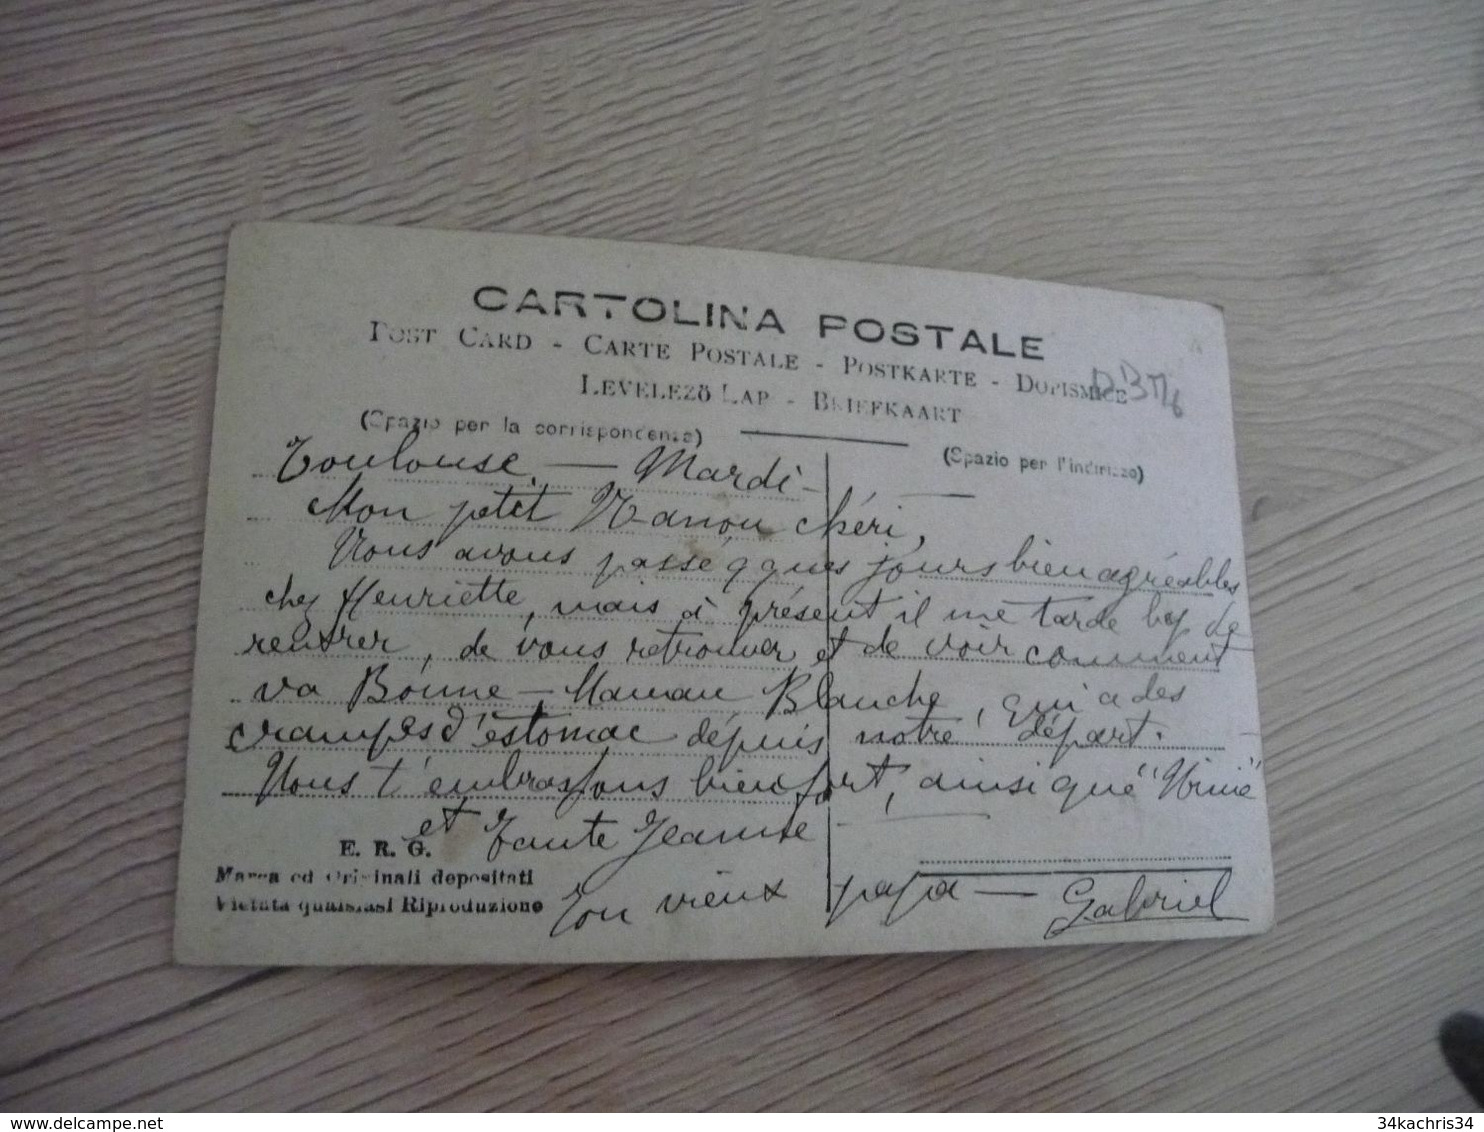 CARTOLINA POSTALE
POST CARD - CARTE POSTALE - POSTKARTE - DOPISNICE
LEVELEZÖ LAP - BRIEFKAART
(Spazio per la corrispondenza)
(Spazio per l'indirizzo)
Toulouse — Mardi -
Mon petit Nanou chéri,
Nous avons passé qques jours bien agréables
chez Henriette, mais à présent il me tarde de
rentrer, de vous retrouver et de voir comment
va Bonne-Maman Blanche, qui a des
crampes d'estomac dépuis notre départ.
Nous t'embrassons bien fort, ainsi que "Ninie"
et Tante Jeanne -
Ton vieux papa — Gabriel
E. R. G.
Marca ed Originali depositati
Vietata qualsiasi Riproduzione
www.delcampe.net
34kachris34